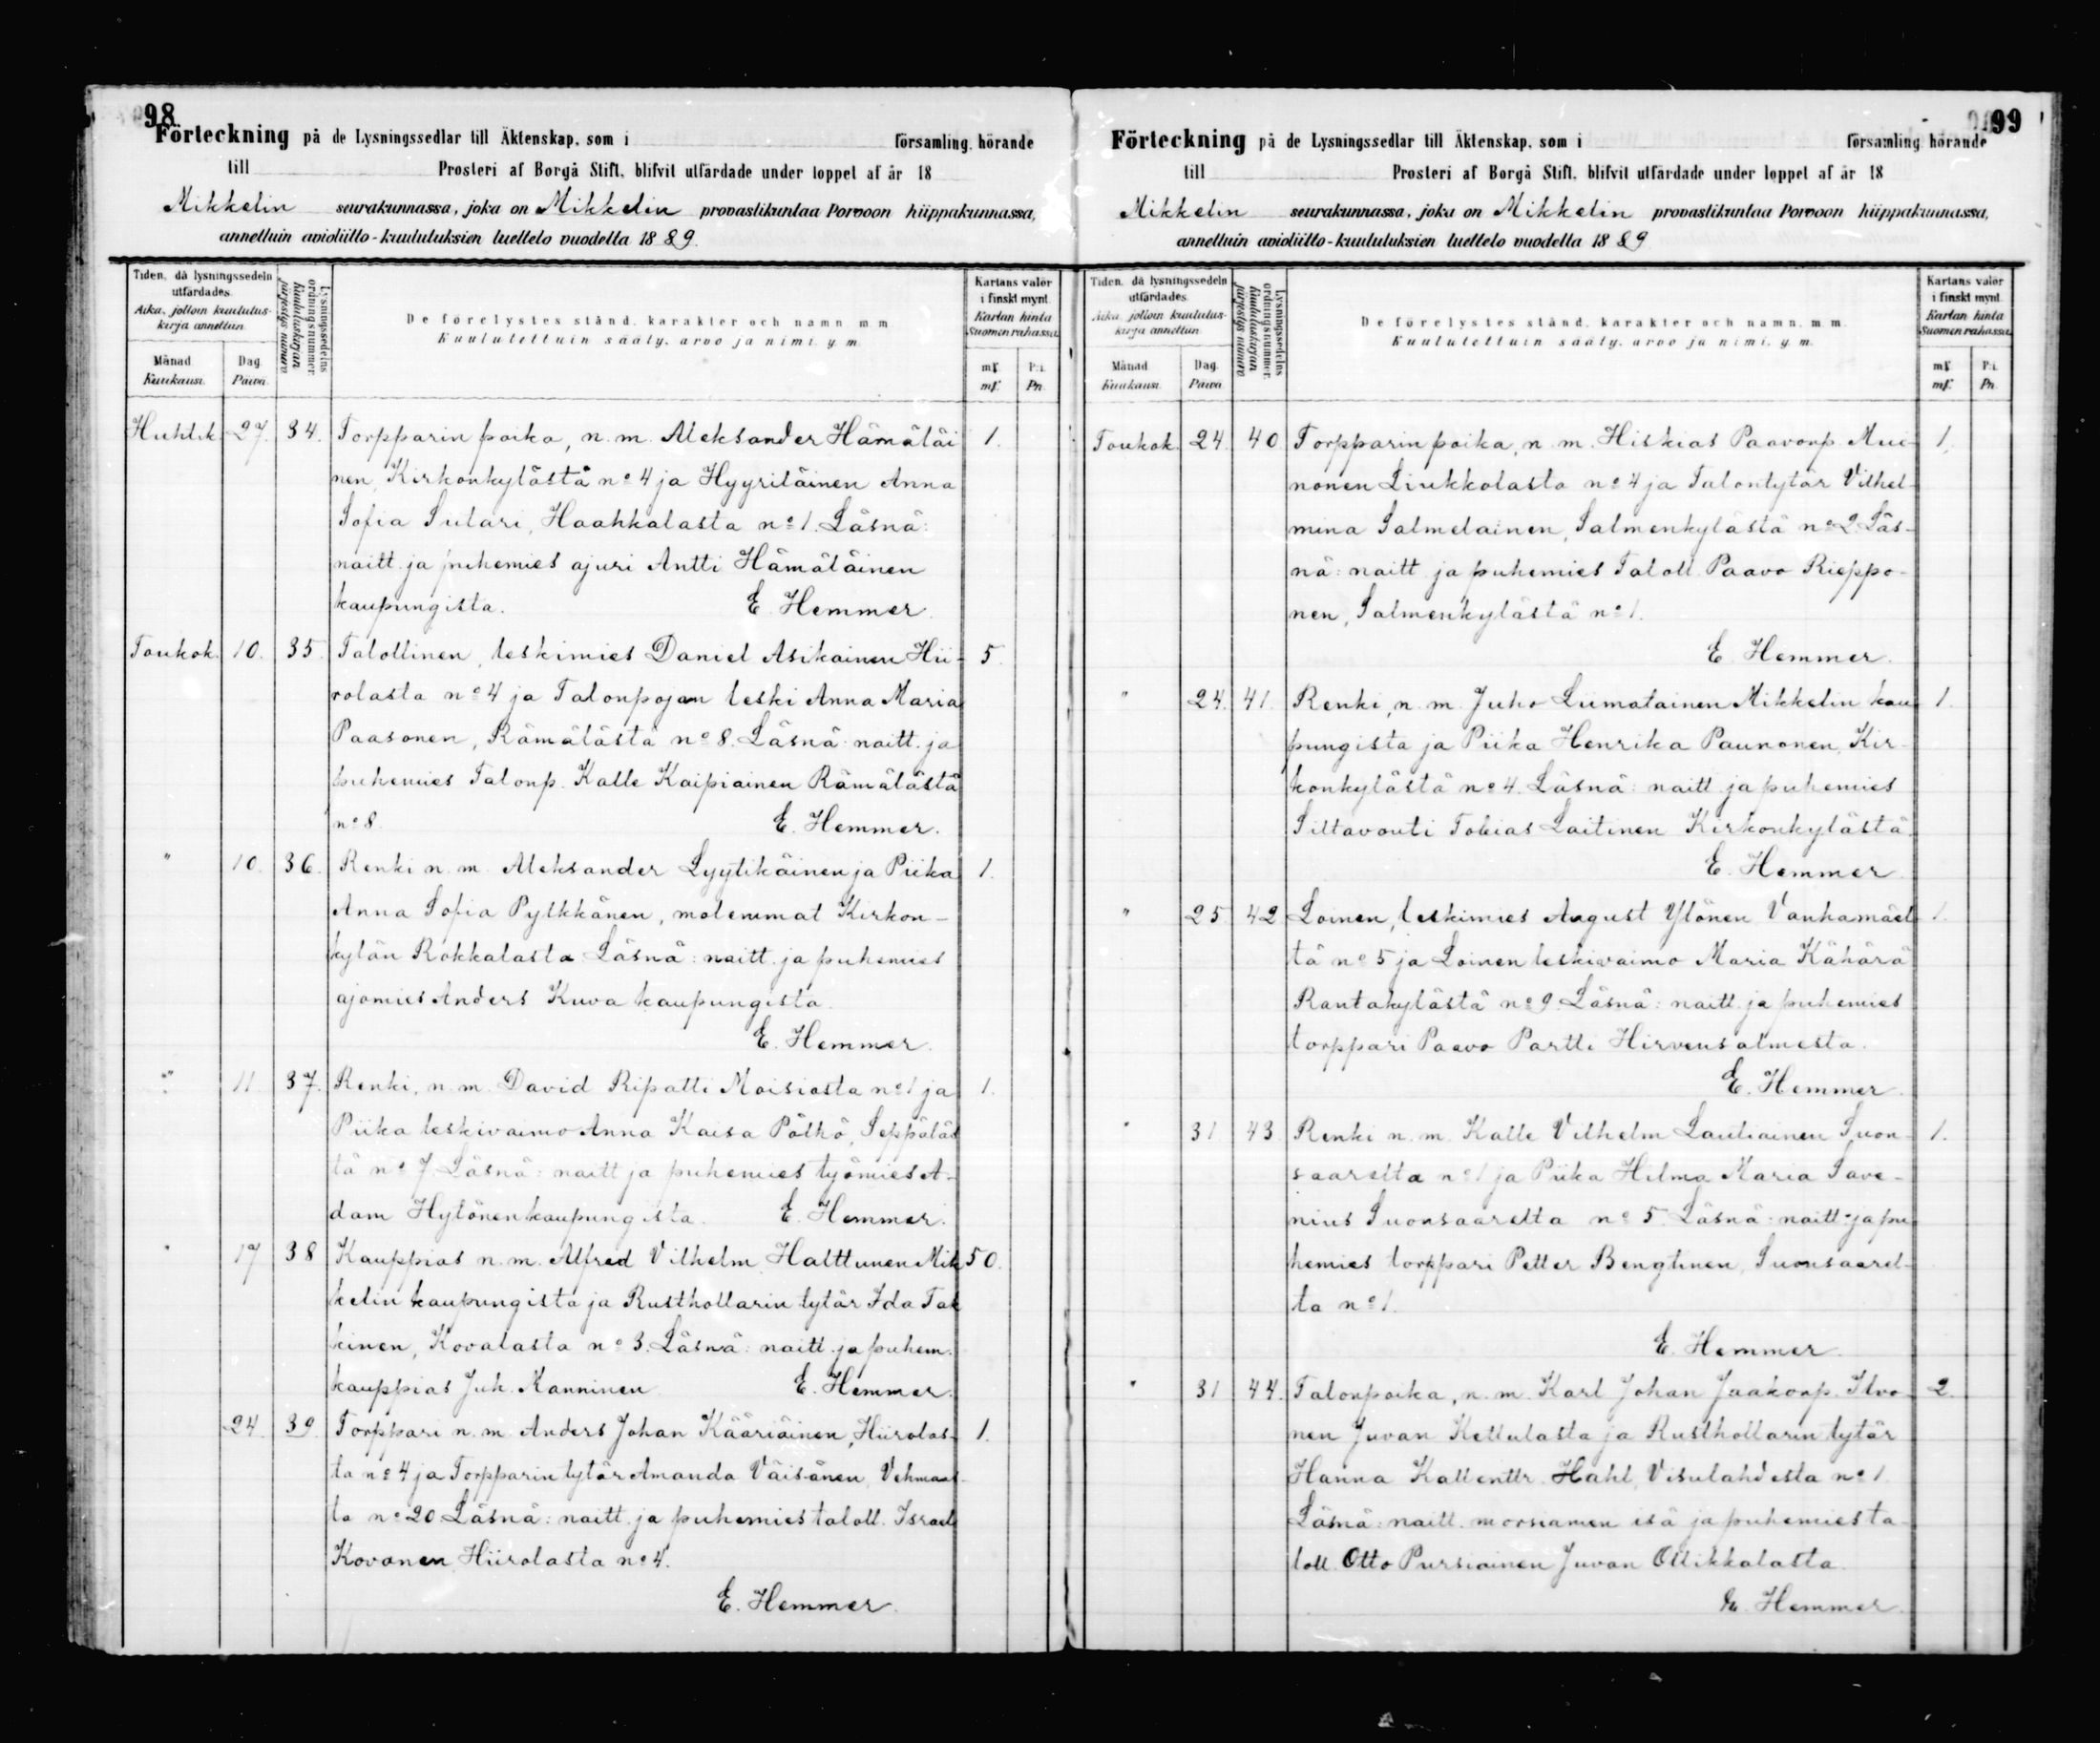 98
Förteckning på de Lysningssedlar till Äktenskap, som i församling, hörande
till Prosteri af Borgå Stift, blifvit utfärdade under loppet af år 18
Mikkelin seurakunnassa, joka on Mikkelin provastikuntaa Porvoon hiippakunnassa,
annettuin avioliitto-kuulutuksien luettelo vuodelta 1889.
Tiden, då lysningssedeln utfärdades.
Aika, jolloin kuulutuskirja annettun.
Månad Kuukausi.
Dag. Päivä.
Lysningssedelns ordningsnummer.
Kuulutuskirjan järjestys numro
De förelystes stånd, karakter och namn m. m.
Kuulutettuin sääty, arvo ja nimi y. m.
Kartans valör i finskt mynt.
Kartan hinta Suomen rahassa.
mf. mf.
P:i. Pn.
Huhtik. 27. 34. Torpparin poika, n. m. Aleksander Hämäläi 1.
nen, Kirkonkylästä no 4 ja Hyyriläinen Anna
Sofia Sutari, Haahkalasta no 1. Läsnä:
naitt. ja puhemies ajuri Antti Hämäläinen
kaupungista. E. Hemmer.
Toukok. 10. 35. Talollinen, leskimies Daniel Asikainen Hii- 5.
rolasta no 4 ja Talonpojan leski Anna Maria
Paasonen, Rämälästä no 8. Läsnä: naitt. ja
puhemies Talonp. Kalle Kaipiainen Rämälästä
no 8. E. Hemmer.
" 10. 36. Renki n. m. Aleksander Lyytikäinen ja Piika 1.
Anna Sofia Pylkkänen, molemmat Kirkon-
kylän Rokkalasta Läsnä: naitt. ja puhemies
ajomies Anders Kuva kaupungista.
E. Hemmer.
" 11 37. Renki, n. m. David Ripatti Moisiosta no 1 ja 1.
Piika leskivaimo Anna Kaisa Pölhö, Seppäläs
tä no 7. Läsnä: naitt ja puhemies työmies A-
dam Hytönen kaupungista. E. Hemmer.
" 17 38 Kauppias n. m. Alfred Vilhelm Halttunen Mik 50.
kelin kaupungista ja Rusthollarin tytär Ida Tak
kinen, Kovalasta no 3. Läsnä: naitt. ja puhem.
kauppias Juh. Manninen E. Hemmer.
24. 39. Torppari n. m. Anders Johan Kääriäinen, Hiirolas- 1.
ta no 4 ja Torpparin tytär Amanda Väisänen, Vehmaas-
ta no 20 Läsnä: naitt. ja puhemies taloll. Israel
Kovanen Hiirolasta no 4.
E. Hemmer.
99
Förteckning på de Lysningssedlar till Äktenskap, som i församling hörande
till Prosteri af Borgå Stift, blifvit utfärdade under loppet af år 18
Mikkelin seurakunnassa, joka on Mikkelin provastikuntaa Porvoon hiippakunnassa,
annettuin avioliitto-kuulutuksien luettelo vuodelta 1889
Tiden, då lysningssedeln utfärdades.
Aika, jolloin kuulutuskirja annettun.
Månad Kuukausi.
Dag. Päivä
Lysningssedelns ordningsnummer.
Kuulutuskirjan järjestys numro
De förelystes stånd, karakter och namn, m. m.
Kuulutettuin sääty, arvo ja nimi, y. m.
Kartans valör i finskt mynt.
Kartan hinta Suomen rahassa.
mf. mf.
P:i. Pn.
Toukok. 24. 40 Torpparin poika, n. m. Hiskias Paavonp. Mui- 1.
nonen Liukkolasta no 4 ja Talontytär Vilhel-
mina Salmelainen, Salmenkylästä no 2. Läs-
nä: naitt. ja puhemies Taloll. Paavo Rieppo-
nen, Salmenkylästä no 1.
E. Hemmer.
" 24. 41. Renki, n. m. Juho Liimatainen Mikkelin kau 1.
pungista ja Piika Henrika Paunonen, Kir-
konkylästä no 4. Läsnä: naitt. ja puhemies
Siltavouti Tobias Laitinen Kirkonkylästä.
E. Hemmer
" 25. 42 Loinen, leskimies August Ylönen Vanhamäel 1.
tä no 5 ja Loinen leskivaimo Maria Kähärä
Rantakylästä no 9 Läsnä: naitt. ja puhemies
torppari Paavo Partti Hirvensalmesta.
E. Hemmer.
" 31 43 Renki n. m. Kalle Vilhelm Lautiainen Suon- 1.
saarelta no 1 ja Piika Hilma Maria Save-
nius Suonsaarelta no 5. Läsnä: naitt. ja pu
hemies torppari Petter Bengtinen, Suonsaarel-
ta no 1.
E. Hemmer.
" 31 44. Talonpoika, n. m. Karl Johan Jaakonp. Ilvo- 2.
nen Juvan Kettulasta ja Rusthollarin tytär
Hanna Kallentr. Hahl, Visulahdesta no 1
Läsnä: naitt. morsiamen isä ja puhemies ta-
loll. Otto Pursiainen Juvan Ollikkalasta.
E. Hemmer